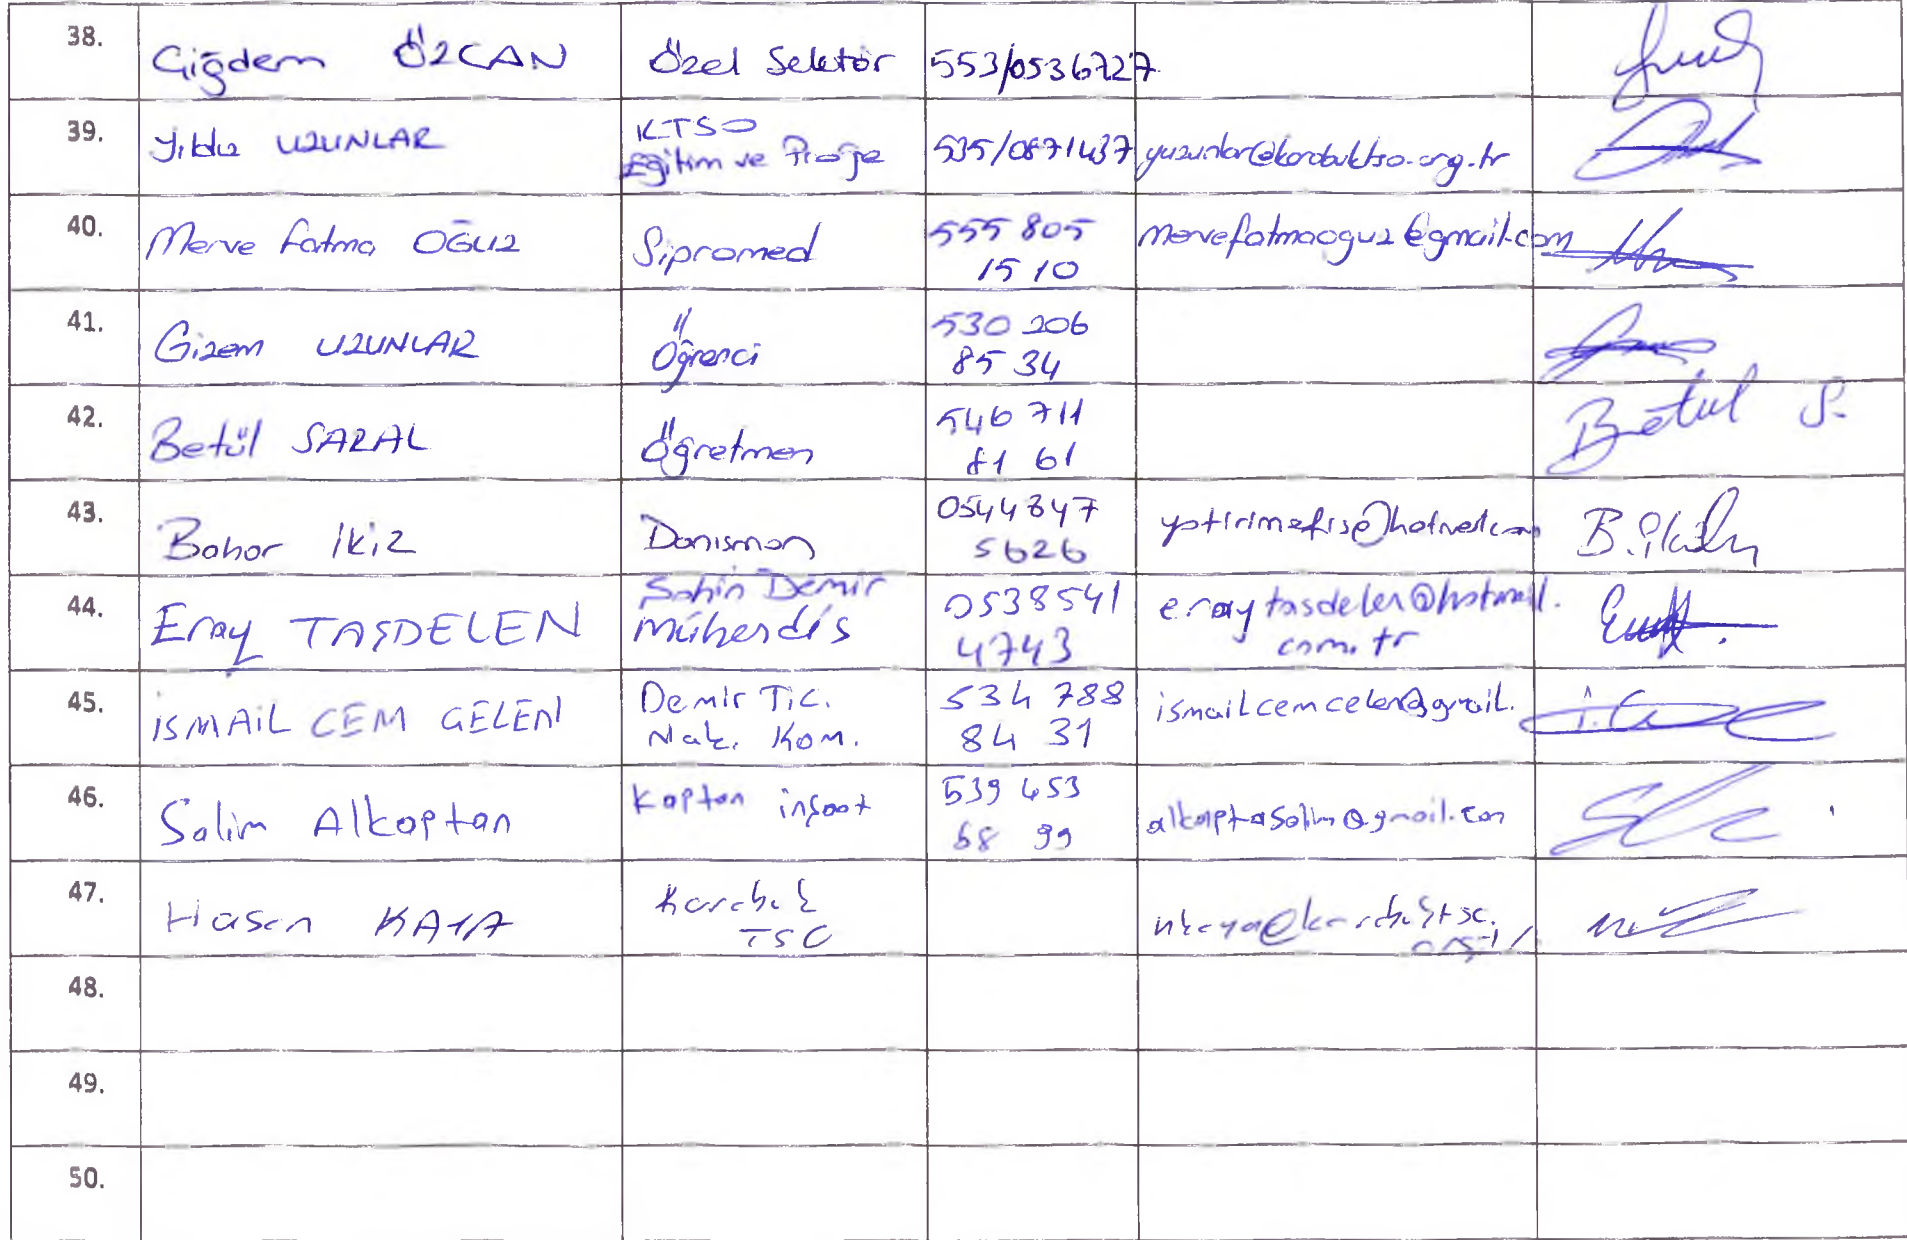 38. Çiğdem ÖZCAN Özel Sektör 553/0536727
39. Yıldız UZUNLAR KTSO Eğitim ve Proje 535/0871437 yuzunlar@karabuktso.org.tr
40. Merve Fatma OĞUZ Sipromed 555 805 15 10 mervefatmaoguz@gmail.com
41. Gizem UZUNLAR Öğrenci 530 206 85 34
42. Betül SARAL Öğretmen 546 711 81 61 Betül S.
43. Bahar İkiz Danışman 0544 847 5626
44. Eray TAŞDELEN Şahin Demir Mühendis 0538541 4743 eraytasdelen@hotmail.com.tr
45. İSMAİL CEM GELEN Demir Tic. Nak. Kom. 534 788 84 31 ismailcemcelen@gmail.
46. Salim Alkaptan Kaptan inşaat 539 453 68 99
47. Hasan KAYA Karabük TSO
48.
49.
50.